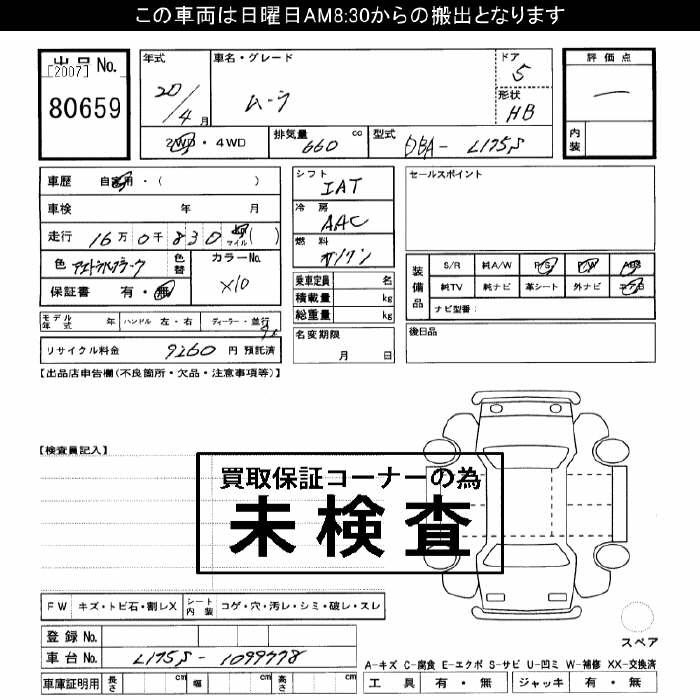 この車両は日曜日AM8:30からの搬出となります
出品No.
[2007]
80659
年式
20/4月
車名・グレード
ムーヴ
ドア
5
形状
HB
評価点
内装
2WD・4WD
排気量
660 cc
型式
DBA- L175S
車歴 自家用・( )
車検 年 月
走行 16万0千830 マイル( )
色
色替
カラーNo.
X10
保証書 有・無
シフト
IAT
冷房
AAC
燃料
ガソリン
乗車定員 名
積載量 kg
総重量 kg
名変期限
月 日
セールスポイント
装備品
S/R 純A/W P/S P/W ABS
純TV 純ナビ 革シート 外ナビ エアB
ナビ型番:
後日品
モデル年式 年
ハンドル 左・右
ディーラー・並行
リサイクル料金 9260 円 預託済
【出品店申告欄(不良箇所・欠品・注意事項等)】
【検査員記入】
買取保証コーナーの為
未検査
FW キズ・トビ石・割レX
シート内装 コゲ・穴・汚レ・シミ・破レ・スレ
登録No.
車台No. L175S- 1099778
車庫証明用 長さ cm 幅 cm 高さ cm
スペア
A-キズ C-腐食 E-エクボ S-サビ U-凹ミ W-補修 XX-交換済
工具 有・無 ジャッキ 有・無